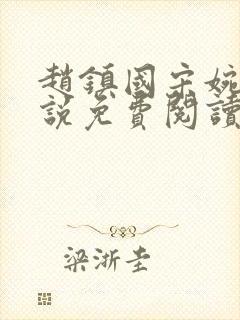 趙鎮國宋婉
說免費閱讀
梁浙圭